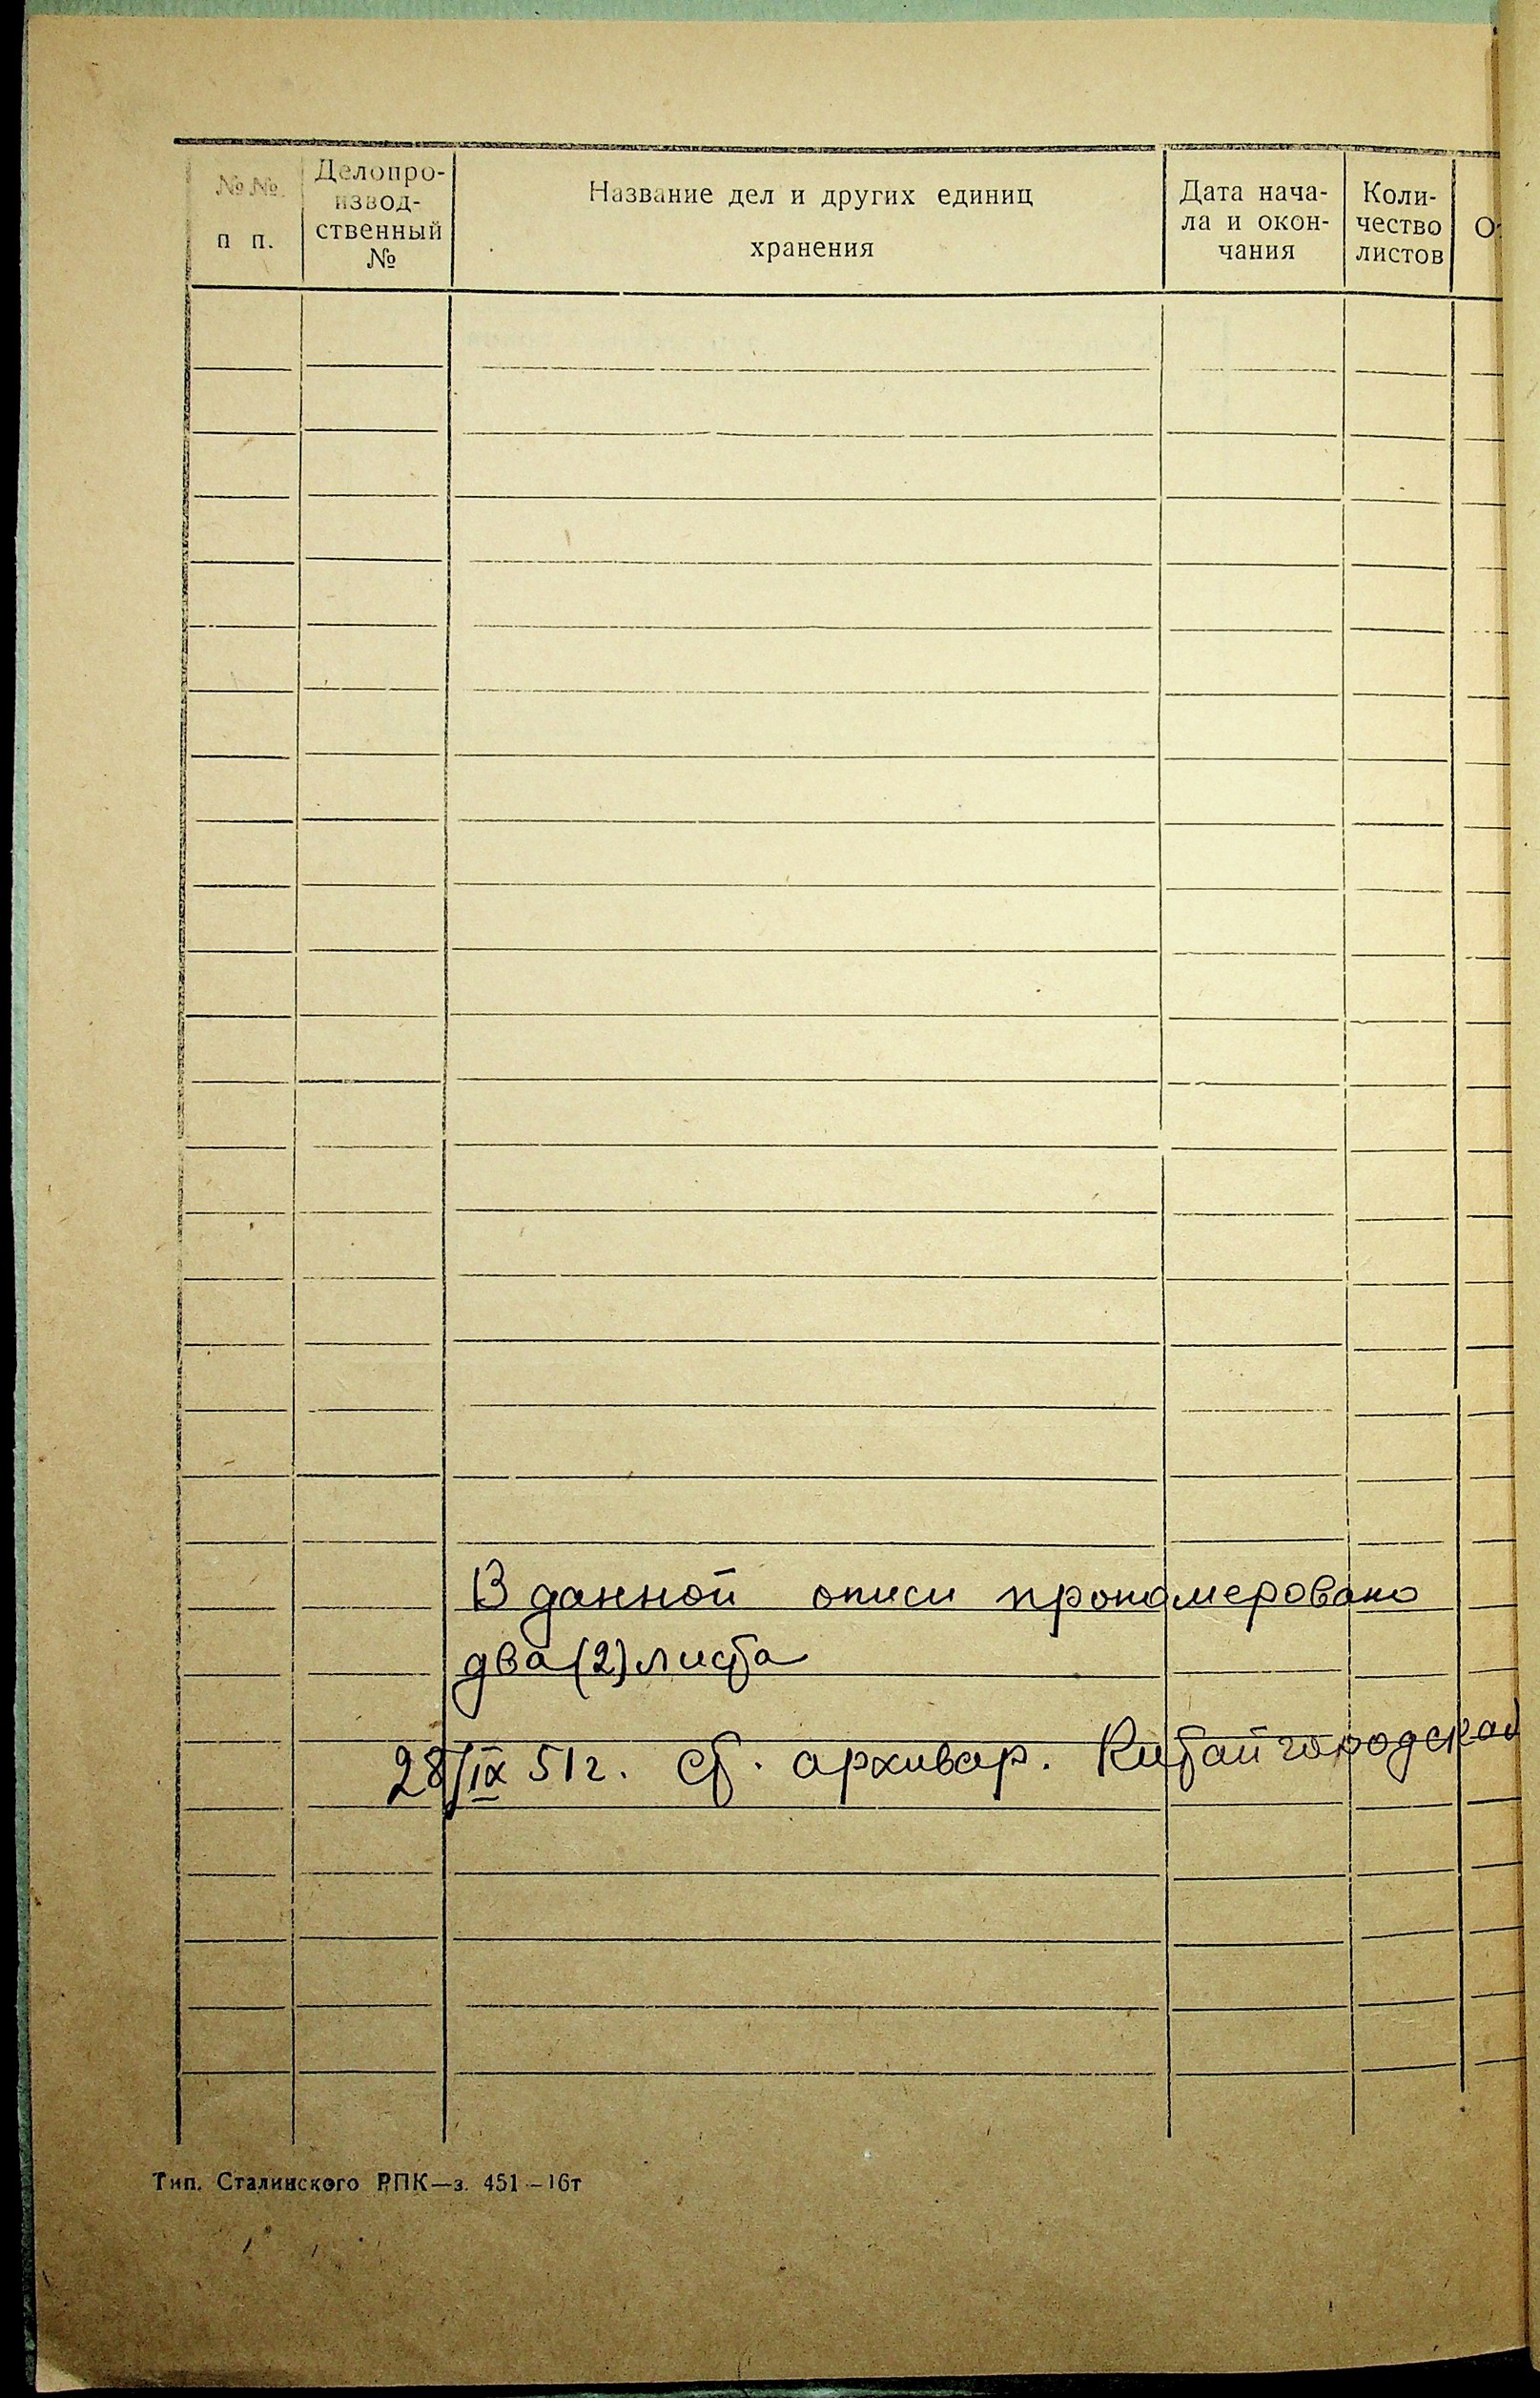 №№ п п.
Делопро-
извод-
ственный
№
Название дел и других единиц
хранения
Дата нача-
ла и окон-
чания
Коли-
чество
листов
В данной описи прономеровано
два (2) листа
28/IX 51г. ст. архивар. Китайгородская
Тип. Сталинского РПК—з. 451—16т